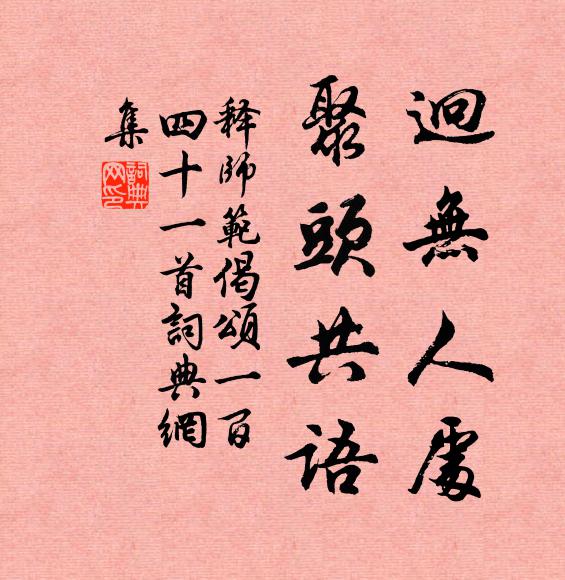 迥無人處
聚頭共語
释師範偈頌一百
四十一首詞典網
集
詞典
网印